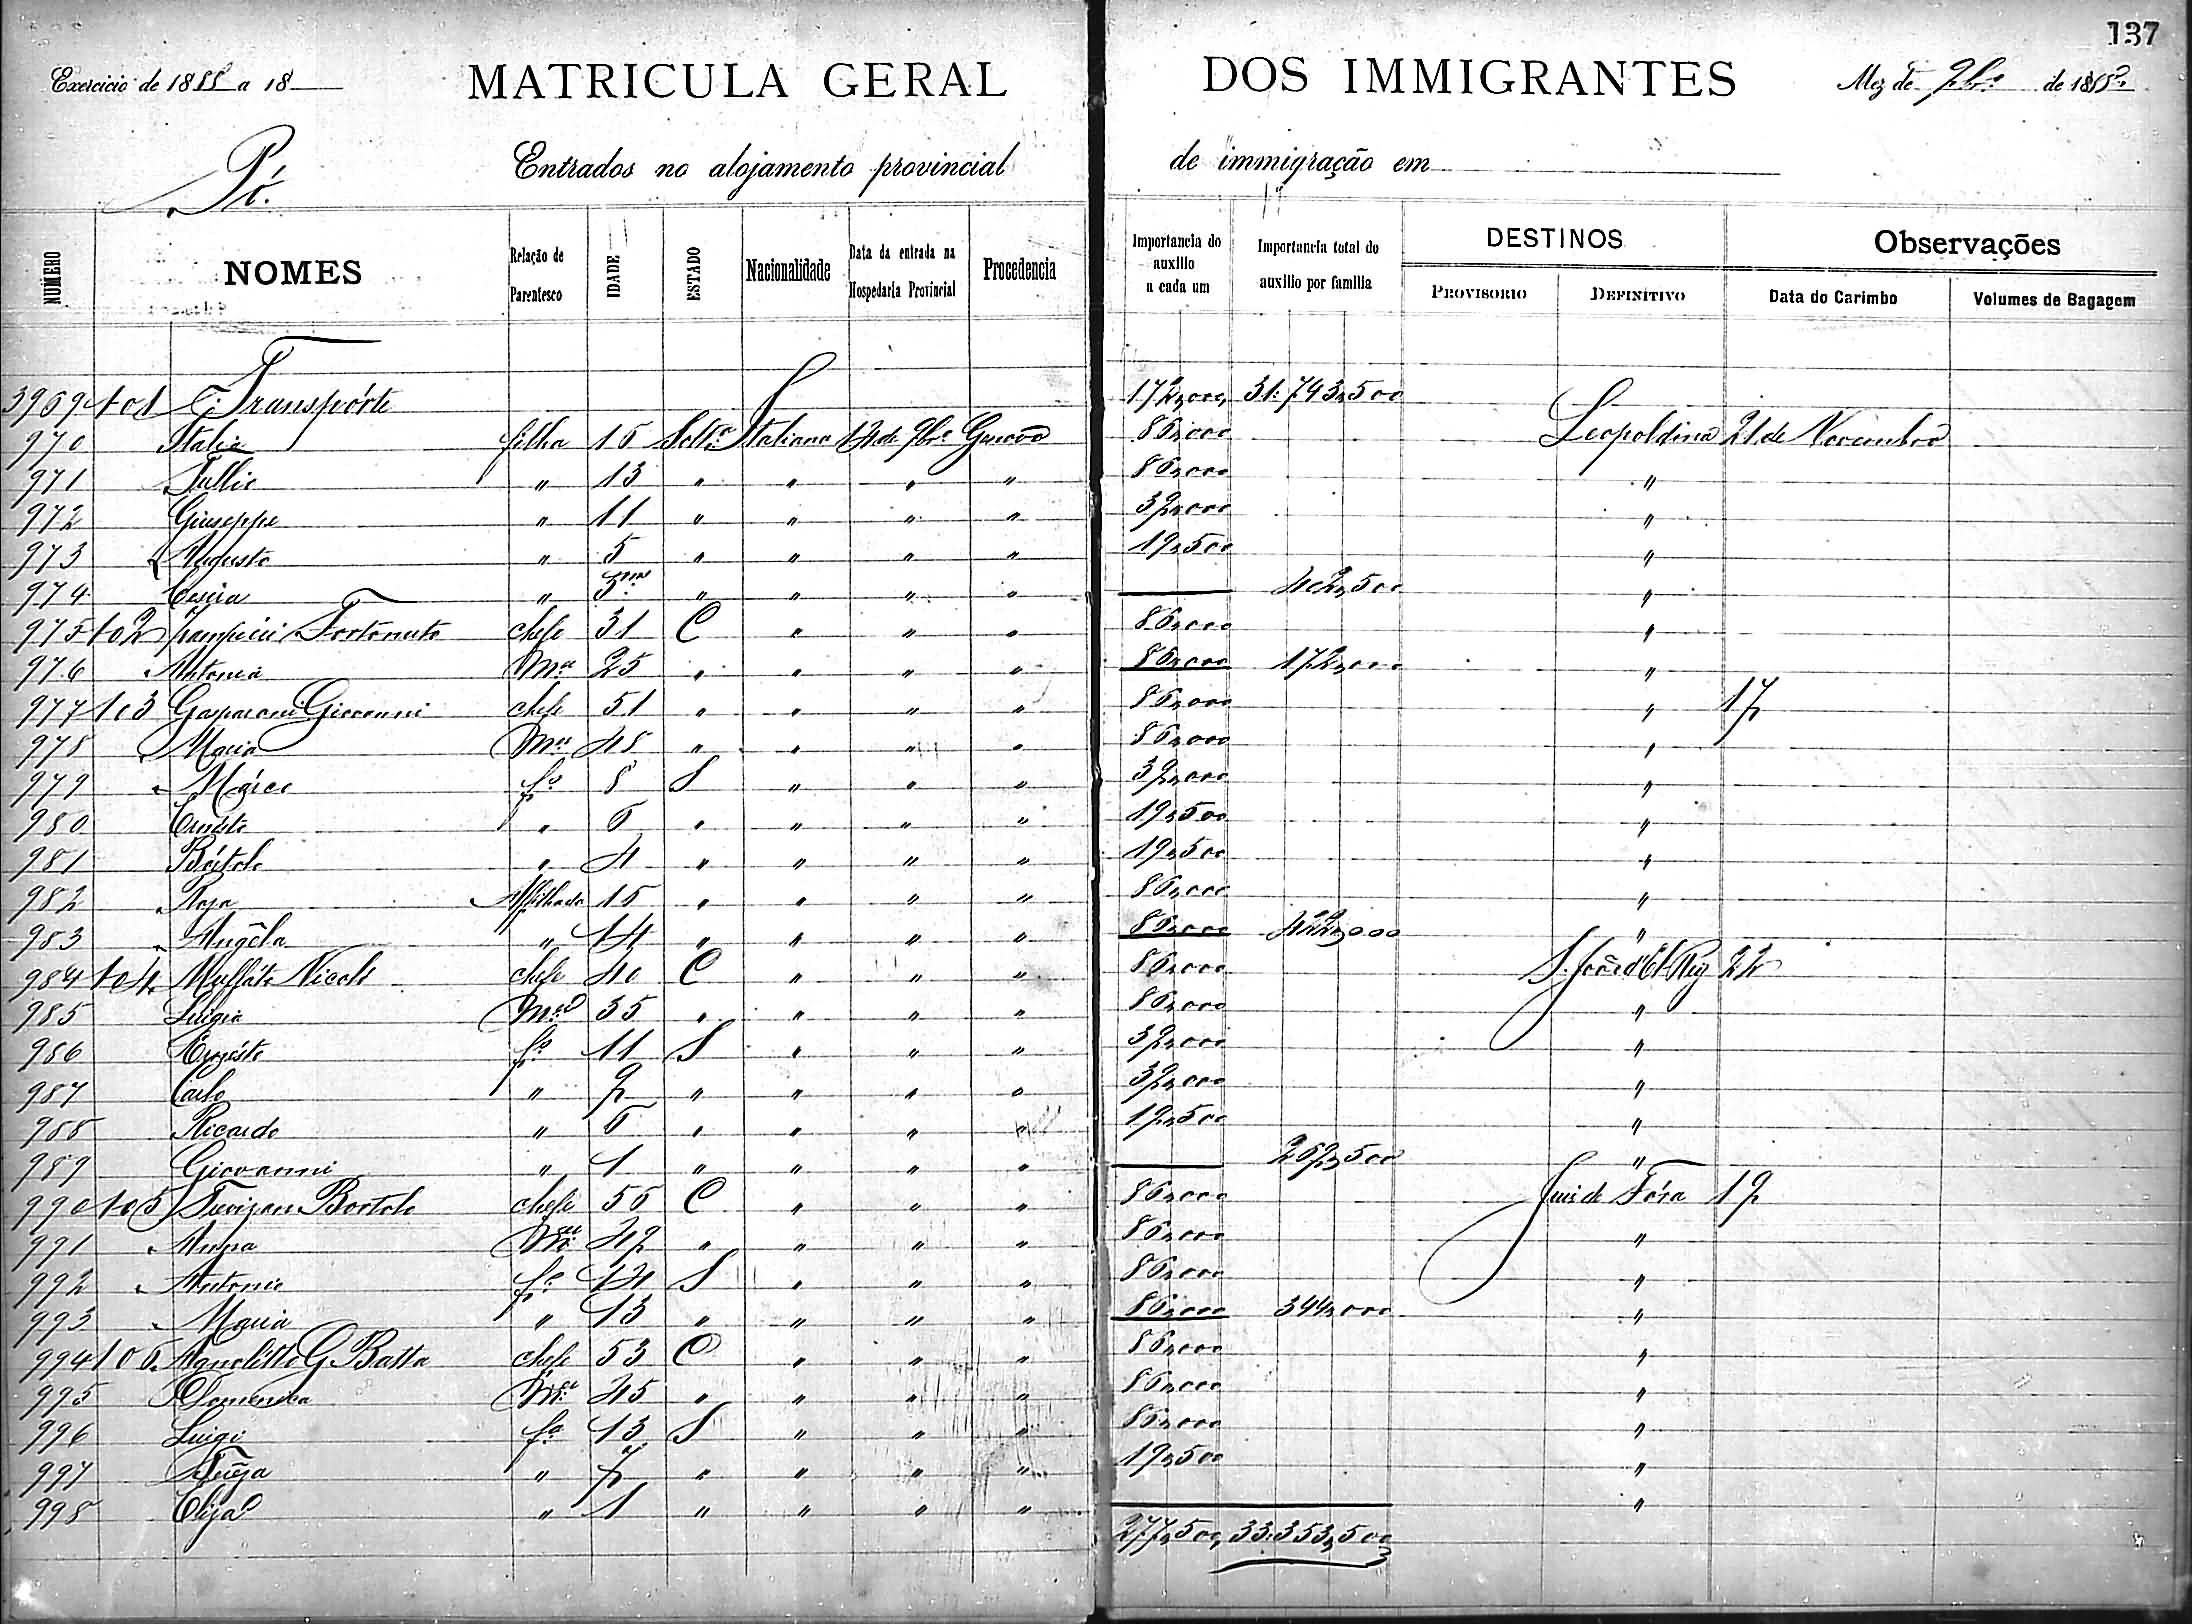 137
Exercicio de 1888 a 18
MATRICULA GERAL DOS IMMIGRANTES
Mez de 9br.o de 1888
Pó.
Entrados no alojamento provincial de immigração em
NUMERO NOMES Relação de Parentesco IDADE ESTADO Nacionalidade Data da entrada na Hospedaria Provincial Procedencia Importancia do auxilio a cada um Importancia total do auxilio por familia DESTINOS PROVISORIO DEFINITIVO Observações Data do Carimbo Volumes de Bagagem
3969 101 Transpórte 172,000 31:743,500
970 Italia filha 16 Soltr.a Italiana 14 de 9br.o Genova 86,000 Leopoldina 21 de Novembro
971 Tullio " 13 " " " " 86,000 "
972 Giuseppe " 11 " " " " 39,000 "
973 Augusto " 5 " " " " 19,500 "
974 " 3m " " " " 402,500 "
975 102 Fortonato chefe 31 C " " " 86,000 "
976 " Antonia M.er 25 " " " " 86,000 172,000 "
977 103 Gasparoni Giovanni chefe 51 " " " " 86,000 " 17
978 " Maria M.er 48 " " " " 86,000 "
979 " Márco f.o 8 S " " " 39,000 "
980 Ernesto " 6 " " " " 19,500 "
981 Bórtolo " 4 " " " " 19,500 "
982 " Rosa Affilhada 16 " " " " 86,000 "
983 " Angéla " 14 " " " " 86,000 422,000 "
984 104 Nicolo chefe 40 C " " " 86,000 S. João d'El-Rey 22
985 Luigia M.er 35 " " " " 86,000 "
986 f.o 11 S " " " 39,000 "
987 Carlo " 9 " " " " 39,000 "
988 Ricardo " 6 " " " " 19,500 "
989 Giovanni " 1 " " " " 269,500 "
990 105 Trevizan Bortolo chefe 56 C " " " 86,000 Juiz de Fóra 19
991 " Anna M.er 49 " " " " 86,000 "
992 " Antonio f.o 14 S " " " 86,000 "
993 " Maria " 13 " " " " 86,000 344,000 "
994 106 Agnolétto G. Batta chefe 53 C " " " 86,000 "
995 Domenica M.er 45 " " " " 86,000 "
996 Luigi f.o 13 S " " " 86,000 "
997 " 7 " " " " 19,500 "
998 " 1 " " " " "
277,500 33:353,500